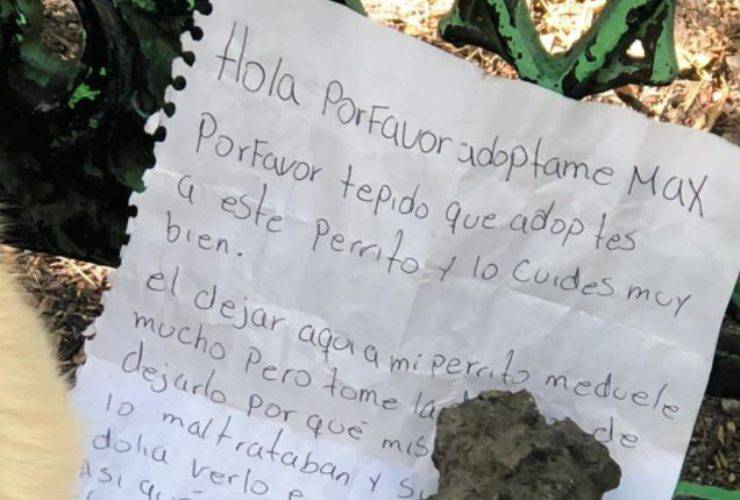 Hola PorFavor adoptame Max
PorFavor tepido que adoptes
a este perrito y lo cuides muy
bien.
el dejar aqui a mi perrito me duele
mucho pero tome la de
dejarlo por qué mis
lo maltrataban y
dolia verlo
Asi